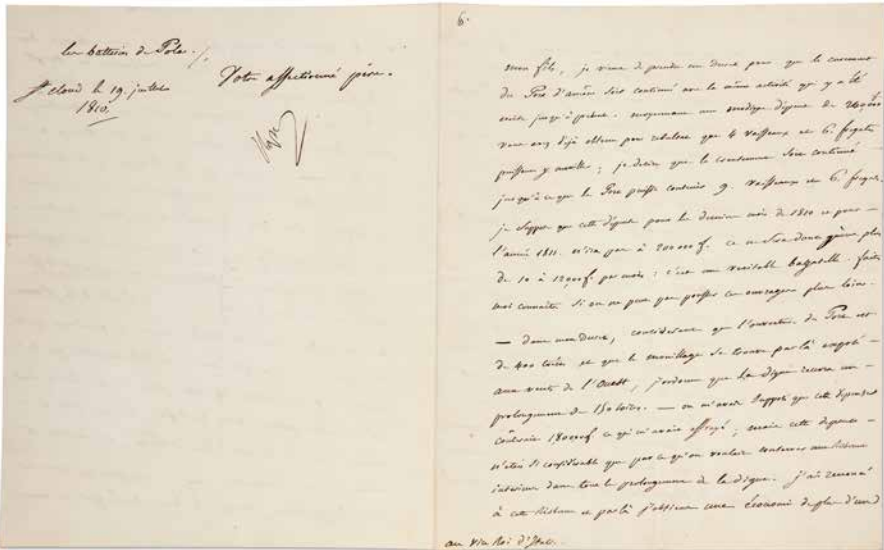 les batteries de Pole ./.
Votre affectionné père.
St cloud le 19. juillet
1810.
Nap
6.
mon fils, je viens de prendre un decret pour que le curement
du Port d'ancône soit continué avec la même activité qui y a été
mise jusqu'à présent. moyennant une modique dépense de
vous avez déjà obtenu pour résultat que 4 vaisseaux et 6. fregates
puissent y mouiller ; je desire que le curement soit continué
jusqu'à ce que le Port puisse contenir 9. vaisseaux et 6. fregates.
je suppose que cette dépense pour les derniers mois de 1810 et pour
l'année 1811. n'ira pas à 200 000 f. ce ne sera donc guère plus
de 10 à 12000 f. par mois : c'est une veritable bagatelle. faites
moi connaitre si on ne peut pas pousser ces ouvrages plus loin.
— dans mon decret, considerant que l'ouverture du Port est
de 400 toises et que le mouillage se trouve par là exposé
aux vents de l'Ouest, j'ordonne que la digue recevra un
prolongement de 150 toises. — on m'avait supposé que cette dépense
couterait 1800000 f ce qui m'avait effrayé ; mais cette depense
n'etait si considerable que parce qu'on voulait conserver une
interieure dans tout le prolongement de la digue. j'ai renoncé
à cette et par là j'obtiens une économie de plus d'un
au Vice Roi d'Italie.